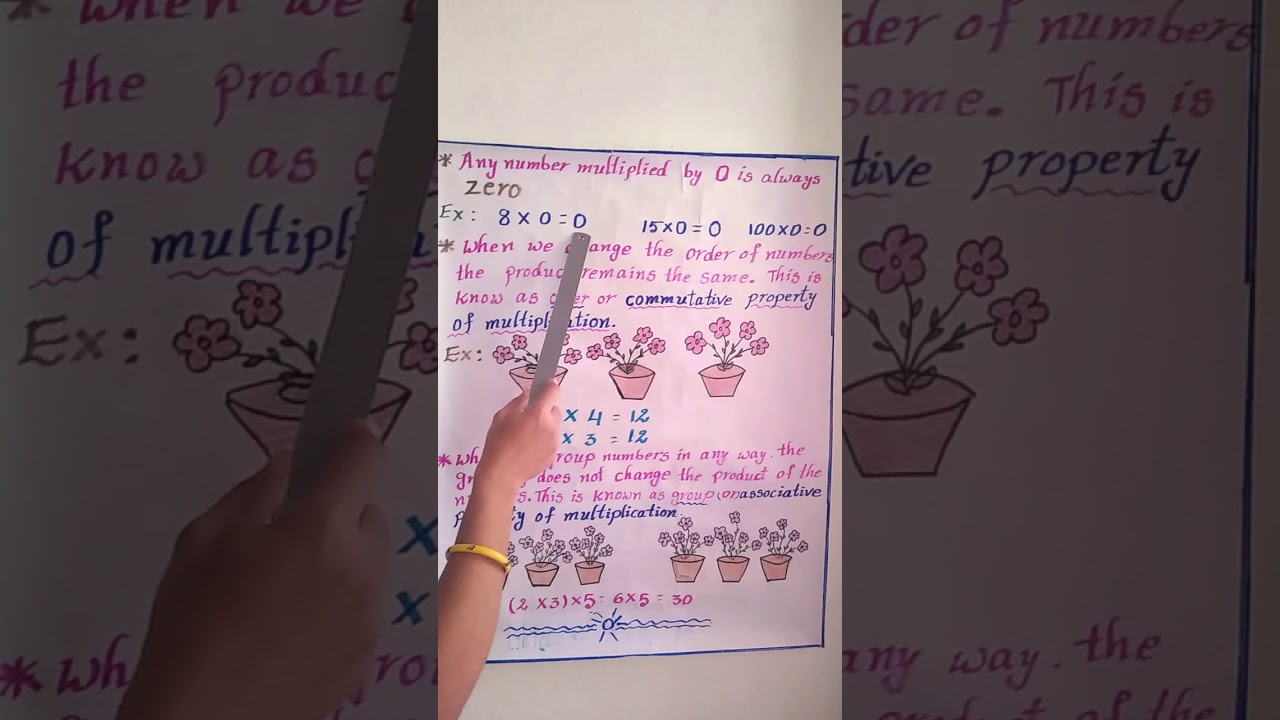 * Any number multiplied by 0 is always
zero
Ex: 8 × 0 = 0 15×0 = 0 100×0=0
* When we change the order of numbers
the product remains the same. This is
know as or commutative property
of multiplication.
Ex:
× 4 = 12
× 3 = 12
* group numbers in any way. the
does not change the product of the
This is known as group (or) associative
of multiplication.
(2 ×3)×5= 6×5 = 30